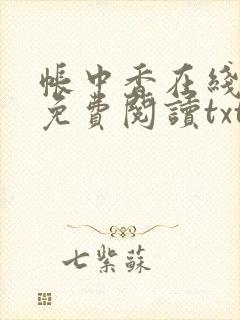 帳中香在綫
免費閱讀txt
七紫蘇